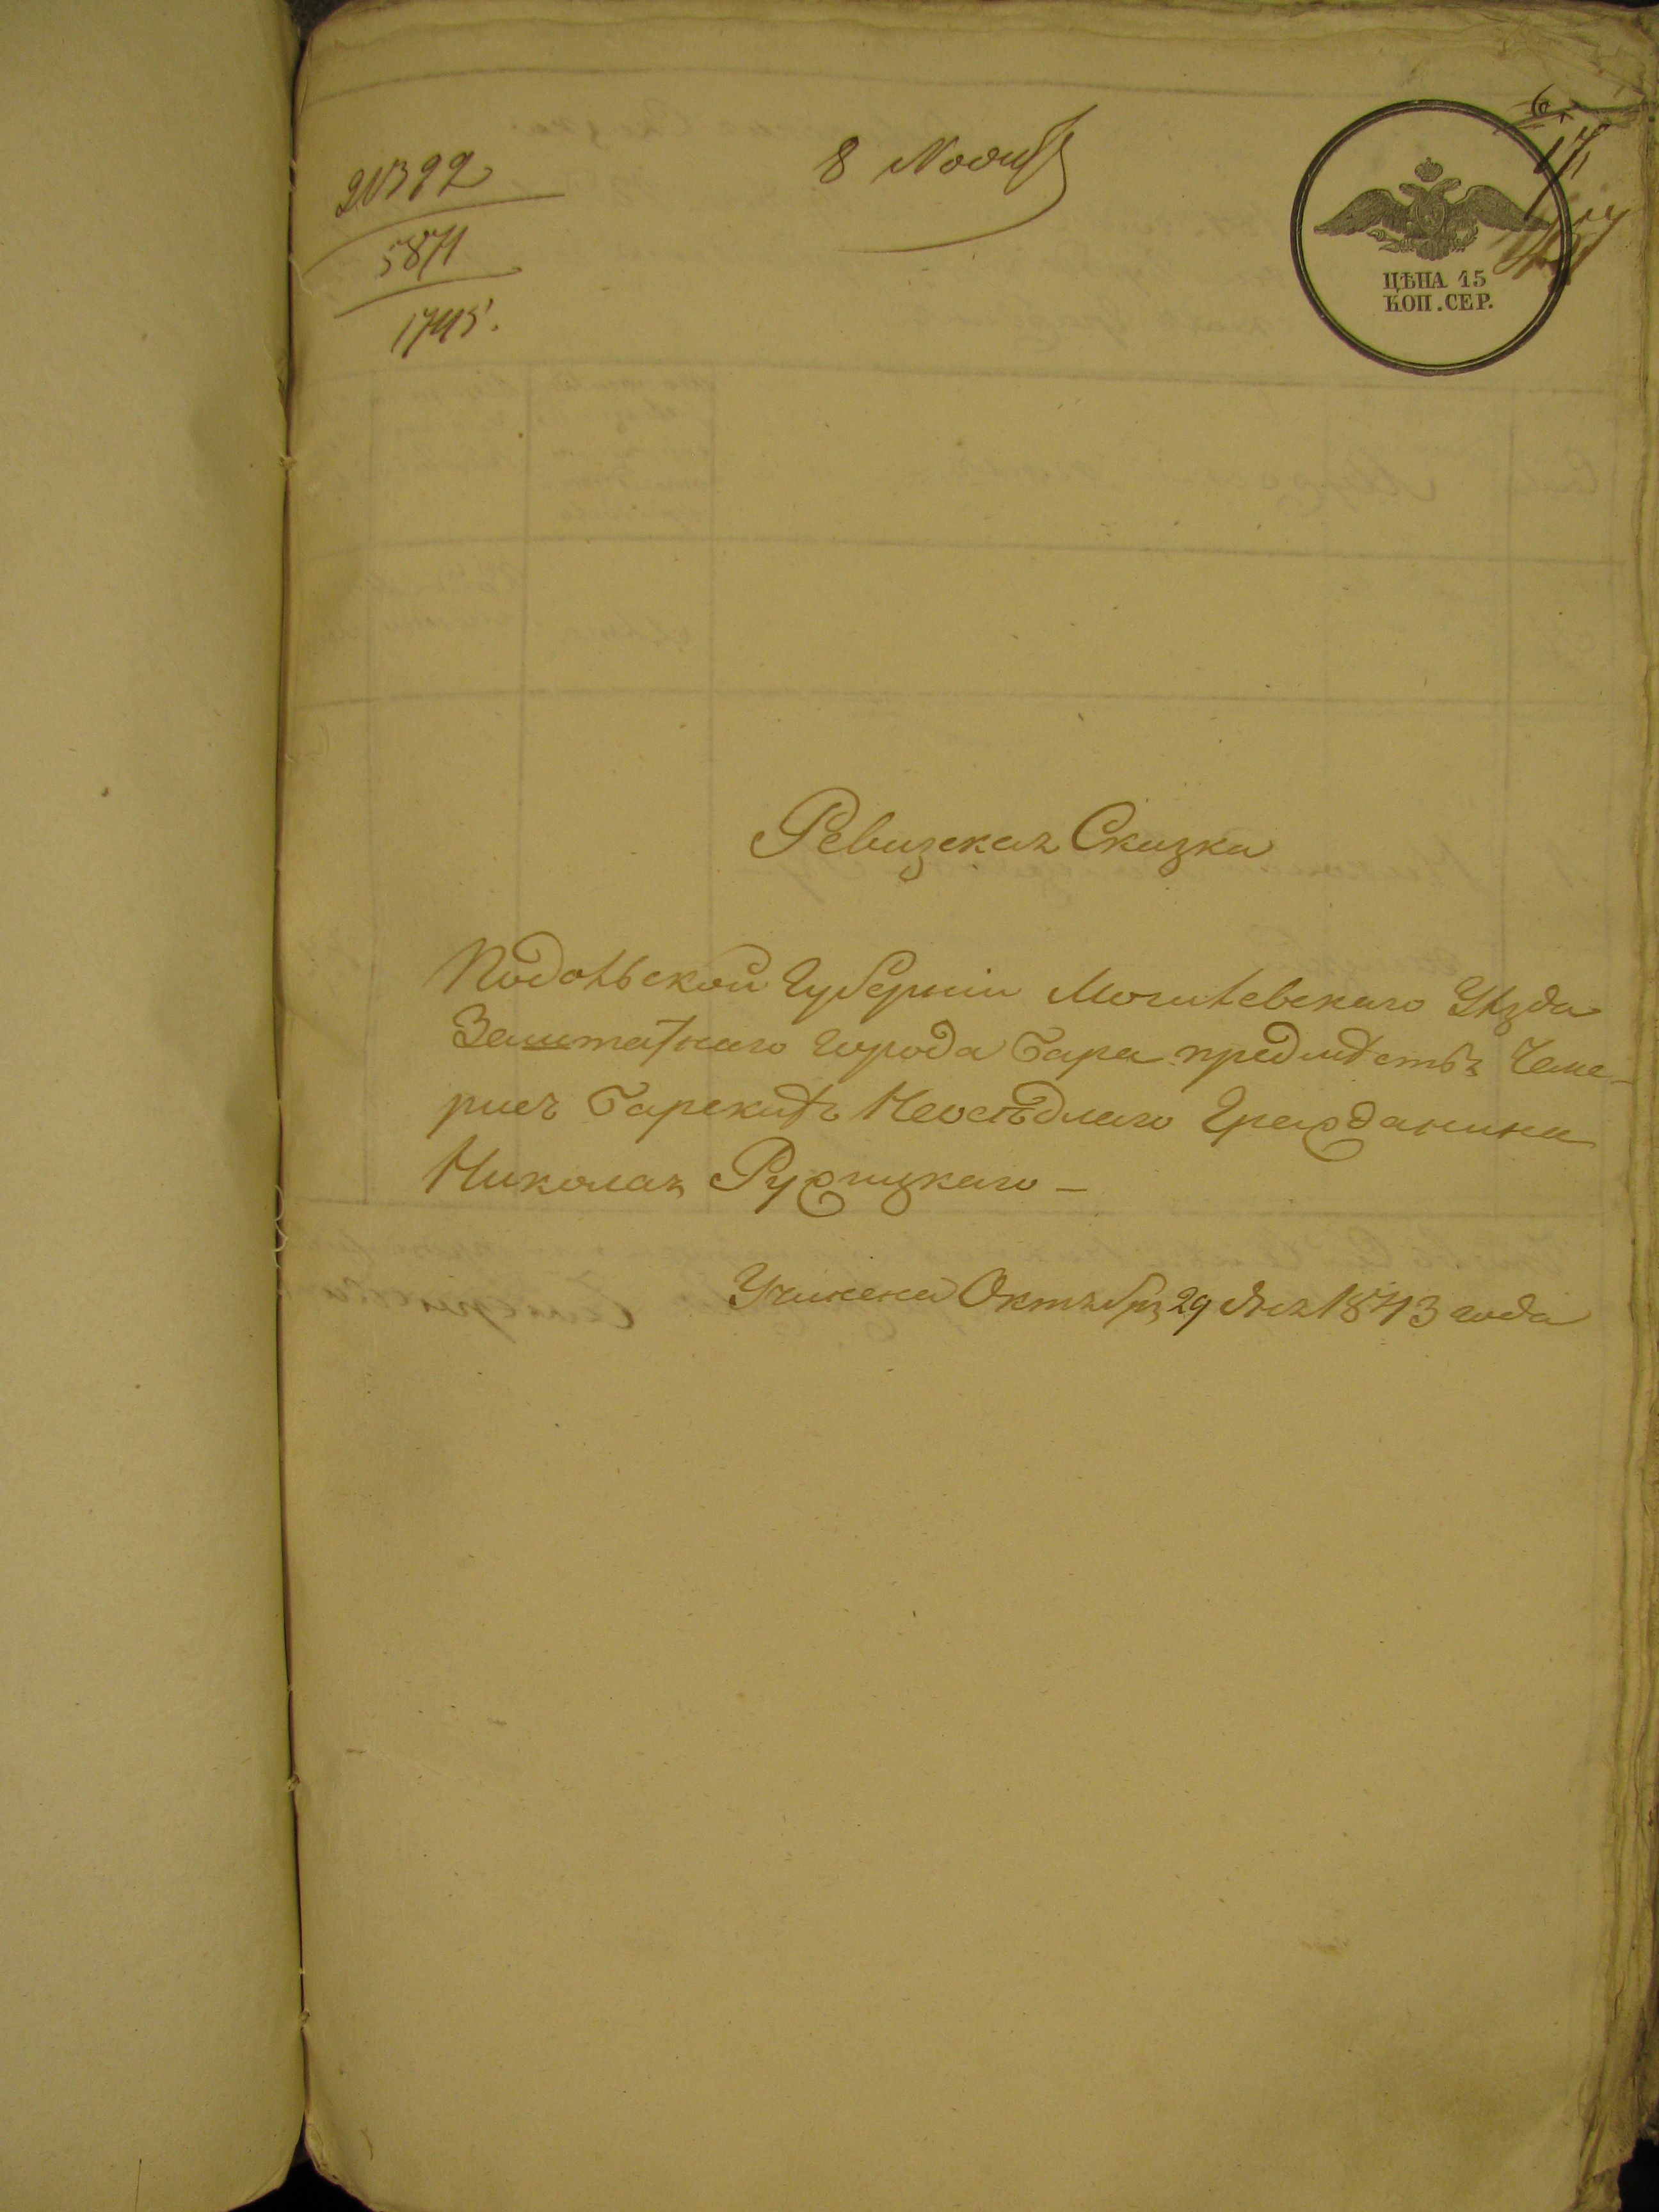 8 Ноябр
5871
1745.
ЦѢНА 15
КОП. СЕР.
Ревизская Сказка
Подольской Губерніи Могилевскаго Уѣзда
Заштатнаго города Бара предмѣстья Чеме-
рисъ Барскихъ Неосѣдлаго Гражданина
Николая Ружицкаго —
Учинена Октября 29 дня 1843 года